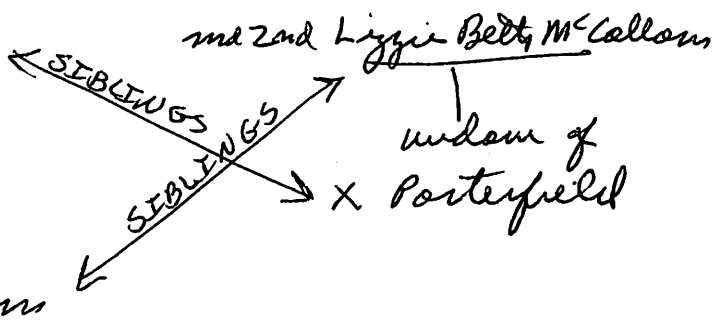 md 2nd Lizzie Betty McCallom
SIBLINGS
SIBLINGS
widow of
X Porterfield